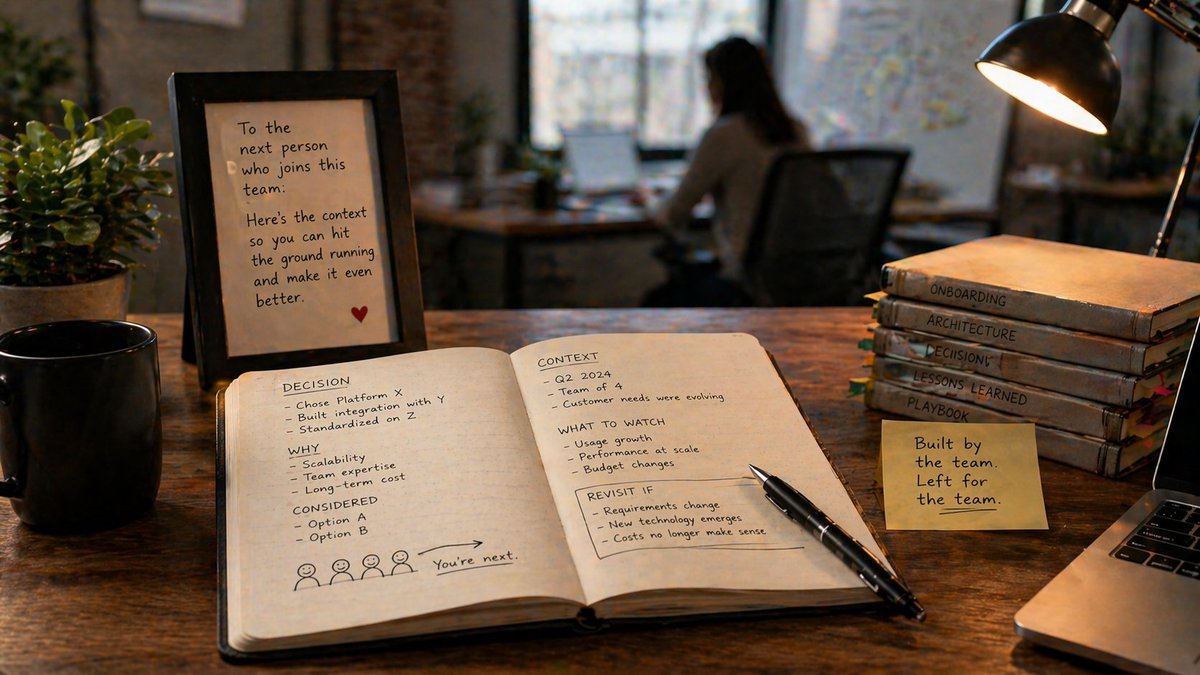 To the
next person
who joins this
team:
Here's the context
so you can hit
the ground running
and make it even
better.
DECISION
- Chose Platform X
- Built integration with Y
- Standardized on Z
WHY
- Scalability
- Team expertise
- Long-term cost
CONSIDERED
- Option A
- Option B
You're next.
CONTEXT
- Q2 2024
- Team of 4
- Customer needs were evolving
WHAT TO WATCH
- Usage growth
- Performance at scale
- Budget changes
REVISIT IF
- Requirements change
- New technology emerges
- Costs no longer make sense
ONBOARDING
ARCHITECTURE
LESSONS LEARNED
PLAYBOOK
Built by
the team.
Left for
the team.